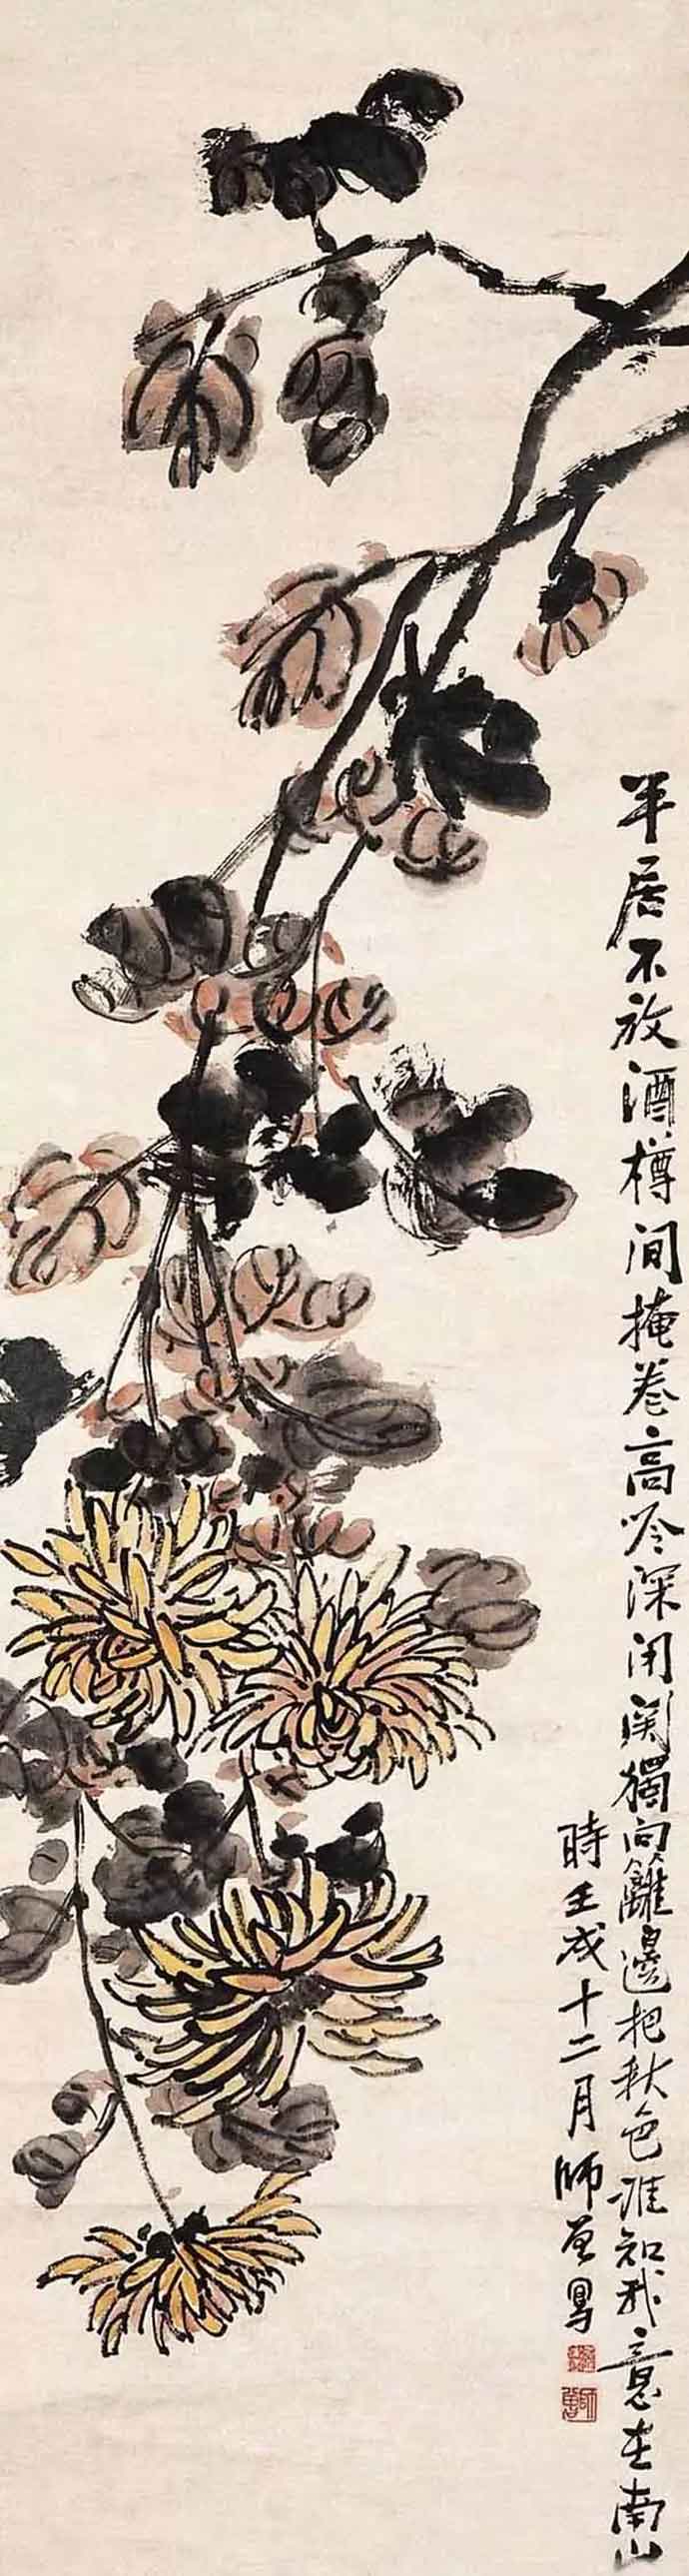 平居不放酒樽间掩卷高吟深闭关獨向籬邊把秋色誰知我意在南山
時壬戌十二月師曾寫
師曾